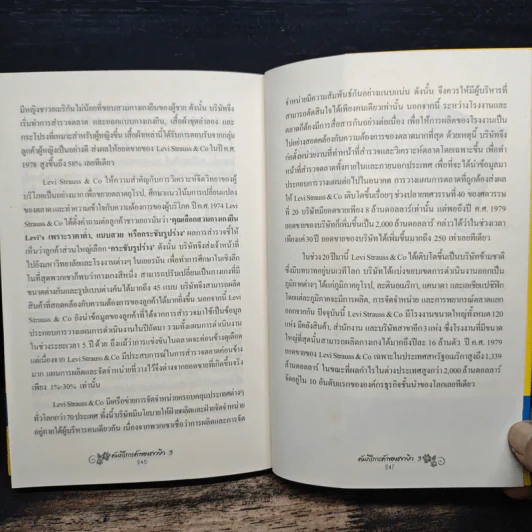 มีหญิงชาวอเมริกันไม่น้อยที่ชอบสวมกางเกงยีนของผู้ชาย ดังนั้น บริษัทจึง
เริ่มทำการสำรวจตลาด และออกแบบกางเกงยีน, เสื้อผ้าชุดลำลอง และ
กระโปรงที่เหมาะสำหรับผู้หญิงขึ้น เสื้อผ้าเหล่านี้ได้รับการตอบรับจากกลุ่ม
ลูกค้าผู้หญิงเป็นอย่างดี ส่งผลให้ยอดขายของ Levi Strauss & Co ในปี ค.ศ.
1978 สูงขึ้นถึง 58% เลยทีเดียว
Levi Strauss & Co ให้ความสำคัญกับการวิเคราะห์จิตวิทยาของผู้
บริโภคเป็นอย่างมาก เพื่อขายตลาดยุโรป, ศึกษาแนวโน้มการเปลี่ยนแปลง
ของตลาด และทำความเข้าใจกับความต้องการของผู้บริโภค ปี ค.ศ. 1974 Levi
Strauss & Co ได้ตั้งคำถามต่อลูกค้าชาวเยอรมันว่า "คุณเลือกสวมกางเกงยีน
Levi's เพราะราคาต่ำ, แบบสวย หรือกระชับรูปร่าง" ผลการสำรวจชี้ให้
เห็นว่าลูกค้าส่วนใหญ่เลือก "กระชับรูปร่าง" ดังนั้น บริษัทจึงส่งเจ้าหน้าที่
ไปยังมหาวิทยาลัยและโรงงานต่างๆ ในเยอรมัน เพื่อทำการศึกษาในเชิงลึก
ในที่สุดพวกเขาก็พบว่ากางเกงสีหนึ่ง สามารถปรับเปลี่ยนเป็นกางเกงที่มี
ขนาดต่างกันและรูปแบบต่างกันได้มากถึง 45 แบบ บริษัทจึงสามารถผลิต
สินค้าที่สอดคล้องกับความต้องการของลูกค้าได้มากยิ่งขึ้น นอกจากนี้ Levi
Strauss & Co ยังนำข้อมูลของลูกค้าที่ได้จากการสำรวจมาใช้เป็นข้อมูล
ประกอบการวางแผนการดำเนินงานในปีถัดมา รวมทั้งแผนการดำเนินงาน
ในช่วงระยะเวลา 5 ปี ด้วย ถึงแม้ว่าการแข่งขันในตลาดจะค่อนข้างดุเดือด
แต่เนื่องจาก Levi Strauss & Co มีประสบการณ์ในการสำรวจตลาดค่อนข้าง
มาก แผนการผลิตและจำหน่ายที่วางไว้จึงต่างจากยอดขายที่เกิดขึ้นจริง
เพียง 1%-30% เท่านั้น
Levi Strauss & Co มีเครือข่ายการจัดจำหน่ายครอบคลุมประเทศต่างๆ
ทั่วโลกกว่า 70 ประเทศ ทั้งนี้บริษัทมีนโยบายให้ฝ่ายผลิตและฝ่ายจัดจำหน่าย
อยู่ภายใต้ผู้บริหารคนเดียวกัน เนื่องจากพวกเขาเชื่อว่าการผลิตและการจัด
คัมภีร์การค้าของชาวยิว 3
240
จำหน่ายมีความสัมพันธ์กันอย่างแนบแน่น ดังนั้น จึงควรให้มีผู้บริหารที่
สามารถตัดสินใจได้เพียงคนเดียวเท่านั้น นอกจากนี้ ระหว่างโรงงานและ
ตลาดก็ต้องมีการสื่อสารกันอย่างต่อเนื่อง เพื่อให้การผลิตของโรงงานเป็น
ไปอย่างสอดคล้องกับความต้องการของตลาดมากที่สุด ด้วยเหตุนี้ บริษัทจึง
ก่อตั้งหน่วยงานที่ทำหน้าที่สำรวจและวิเคราะห์ตลาดโดยเฉพาะขึ้น เพื่อทำ
หน้าที่สำรวจตลาดทั้งภายในและภายนอกประเทศ เพื่อที่จะได้นำข้อมูลมา
ประกอบการวางแผนต่อไปในอนาคต การวางแผนการตลาดที่ถูกต้องส่งผล
ให้ Levi Strauss & Co เติบโตขึ้นเรื่อยๆ ช่วงปลายทศวรรษที่ 40 ของศตวรรษ
ที่ 20 บริษัทมียอดขายเพียง 8 ล้านดอลลาร์เท่านั้น แต่พอถึงปี ค.ศ. 1979
ยอดขายของบริษัทก็เพิ่มขึ้นเป็น 2,000 ล้านดอลลาร์ กล่าวได้ว่าในช่วงเวลา
เพียงแค่ 30 ปี ยอดขายของบริษัทได้เพิ่มขึ้นมากถึง 250 เท่าเลยทีเดียว
ในช่วง 20 ปีมานี้ Levi Strauss & Co ได้เติบโตขึ้นเป็นบริษัทข้ามชาติ
ซึ่งมีบทบาทอยู่บนเวทีโลก บริษัทได้แบ่งขอบเขตการดำเนินงานออกเป็น
ภูมิภาคต่างๆ ได้แก่ภูมิภาคยุโรป, ละตินอเมริกา, แคนาดา และเอเชียแปซิฟิก
โดยแต่ละภูมิภาคจะมีการผลิต, การจัดจำหน่าย และการพยากรณ์ตลาดแยก
ออกจากกัน ปัจจุบันนี้ Levi Strauss & Co มีโรงงานขนาดใหญ่ทั้งหมด 120
แห่ง มีคลังสินค้า, สำนักงาน และบริษัทสาขาอีก 3 แห่ง ซึ่งโรงงานที่มีขนาด
ใหญ่ที่สุดนั้นสามารถผลิตกางเกงได้มากถึงปีละ 16 ล้านตัว ปี ค.ศ. 1979
ยอดขายของ Levi Strauss & Co เฉพาะในประเทศสหรัฐอเมริกาสูงถึง 1,339
ล้านดอลลาร์ ในขณะที่ผลกำไรในต่างประเทศสูงกว่า 2,000 ล้านดอลลาร์
จัดอยู่ใน 10 อันดับแรกขององค์กรธุรกิจชั้นนำของโลกเลยทีเดียว
คัมภีร์การค้าของชาวยิว 3
241